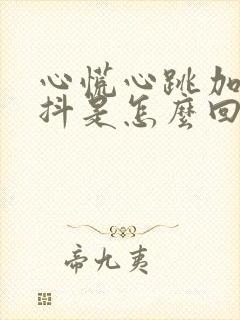 心慌心跳加
抖是怎麼回
帝九夷